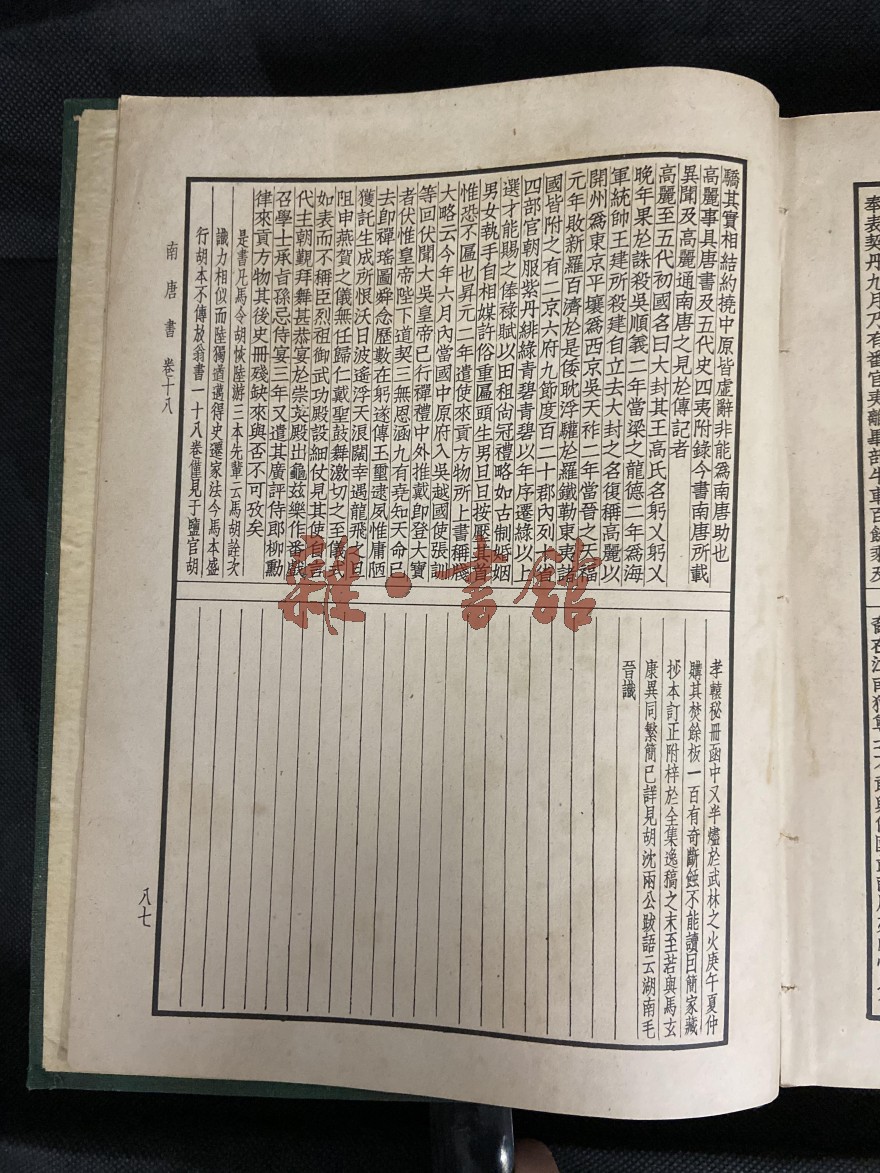 驕其實相結約撓中原皆虛辭非能爲南唐助也
高麗事具唐書及五代史四夷附錄今書南唐所載
異聞及高麗通南唐之見於傳記者
高麗至五代初國名曰大封其王高氏名躬乂躬乂
晚年果於誅殺吳順義二年當梁之龍德二年爲海
軍統帥王建所殺建自立去大封之名復稱高麗以
開州爲東京平壤爲西京吳天祚二年當晉之天福
元年敗新羅百濟於是倭耽浮驩於羅鐵勒東夷諸
國皆附之有二京六府九節度百二十郡內列十省
四部官朝服紫丹緋綠青碧青碧以年序遷綠以上
選才能賜之俸祿賦以田租尙冠禮略如古制婚姻
男女執手自相媒許俗重匾頭生男旦旦按壓其首
惟恐不匾也昇元二年遣使來貢方物所上書稱牋
大略云今年六月內當國中原府入吳越國使張訓
等回伏聞大吳皇帝已行禪禮中外推戴卽登大寶
者伏惟皇帝陛下道契三無恩涵九有堯知天命已
去卽禪瑤圖舜念歷數在躬遂傳王璽建夙惟庸陋
獲託生成所恨沃日波遙浮天浪闊幸遇龍飛之旦
阻申燕賀之儀無任歸仁戴聖鼓舞激切之至儀式
如表而不稱臣烈祖御武功殿設細仗見其使自言
代主朝覲拜舞甚恭宴於崇英殿出龜玆樂作番戲
召學士承旨孫忌侍宴三年又遣其廣評侍郎柳勳
律來貢方物其後史冊殘缺來與否不可攷矣
是書凡馬令胡恢陸游三本先輩云馬胡詮次
識力相似而陸獨遒邁得史遷家法今馬本盛
行胡本不傳放翁書一十八卷僅見于鹽官胡
孝轅秘冊函中又半燼於武林之火庚午夏仲
購其焚餘板一百有奇斷蝕不能讀因簡家藏
抄本訂正附梓於全集逸稿之末至若與馬玄
康異同繁簡已詳見胡沈兩公跋語云湖南毛
晉識
南唐書 卷十八
八七
雜·書館